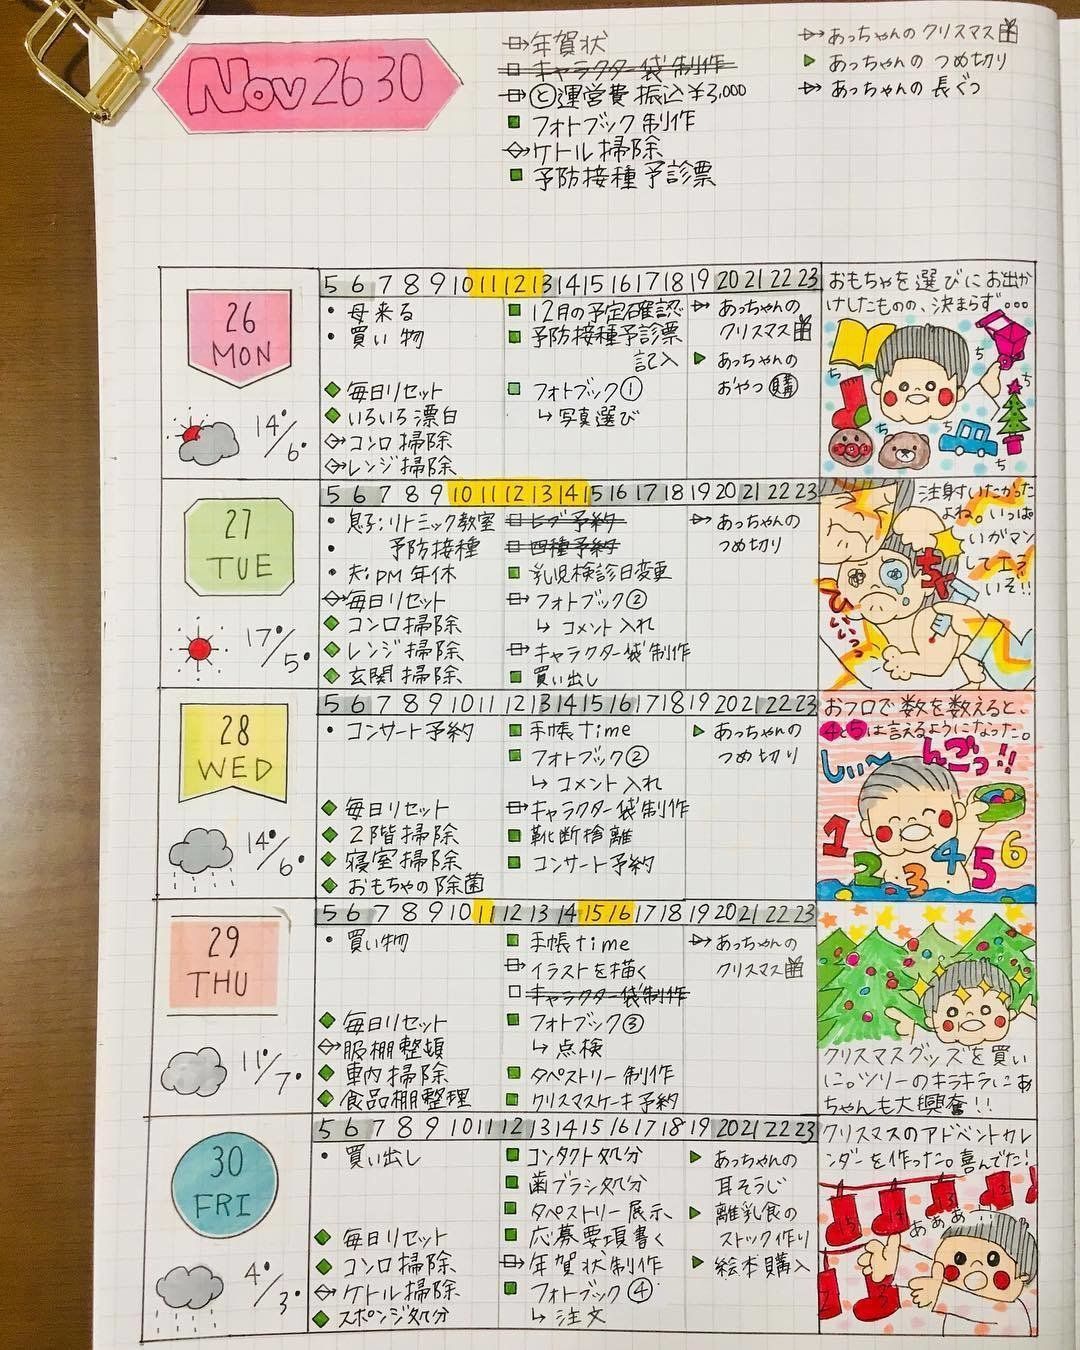 Nov 26 30
年賀状
キャラクター袋制作
と運営費振込¥3,000
フォトブック制作
ケトル掃除
予防接種予診票
あっちゃんのクリスマス
あっちゃんのつめ切り
あっちゃんの長ぐつ
26
MON
14°/6°
5 6 7 8 9 10 11 12 13 14 15 16 17 18 19 20 21 22 23
・母来る
・買い物
毎日リセット
いろいろ漂白
コンロ掃除
レンジ掃除
12月の予定確認
予防接種予診票
記入
フォトブック①
↳写真選び
あっちゃんの
クリスマス
あっちゃんの
おやつ購
おもちゃを選びにお出か
けしたものの、決まらず…
ち
ち
ち
ち
ち
ち
27
TUE
17°/5°
5 6 7 8 9 10 11 12 13 14 15 16 17 18 19 20 21 22 23
・息子:リトミック教室
・予防接種
・夫:PM年休
毎日リセット
コンロ掃除
レンジ掃除
玄関掃除
ヒブ予約
四種予約
乳児検診日変更
フォトブック②
↳コメント入れ
キャラクター袋制作
買い出し
あっちゃんの
つめ切り
注射すいたかった
よね。いっぱ
いがマン
してエラ
いぞ!!
ひいいっっ
28
WED
14°/6°
5 6 7 8 9 10 11 12 13 14 15 16 17 18 19 20 21 22 23
・コンサート予約
毎日リセット
2階掃除
寝室掃除
おもちゃの除菌
手帳time
フォトブック②
↳コメント入れ
キャラクター袋制作
靴断捨離
コンサート予約
あっちゃんの
つめ切り
おフロで数を数えると、
4と5は言えるようになった。
しぃ〜 んごっ!!
1 2 3 4 5 6
29
THU
11°/7°
5 6 7 8 9 10 11 12 13 14 15 16 17 18 19 20 21 22 23
・買い物
毎日リセット
服棚整頓
車内掃除
食品棚整理
手帳time
イラストを描く
キャラクター袋制作
フォトブック③
↳点検
タペストリー制作
クリスマスケーキ予約
あっちゃんの
クリスマス
クリスマスグッズを買い
に。ツリーのキラキラにあ
ちゃんも大興奮!!
30
FRI
4°/3°
5 6 7 8 9 10 11 12 13 14 15 16 17 18 19 20 21 22 23
・買い出し
毎日リセット
コンロ掃除
ケトル掃除
スポンジ処分
コンタクト処分
歯ブラシ処分
タペストリー展示
応募要項書く
年賀状制作
フォトブック④
↳注文
あっちゃんの
耳そうじ
離乳食の
ストック作り
絵本購入
クリスマスのアドベントカレ
ンダーを作った。喜んでた!
15 14 13 12
あぁぁ
2 3